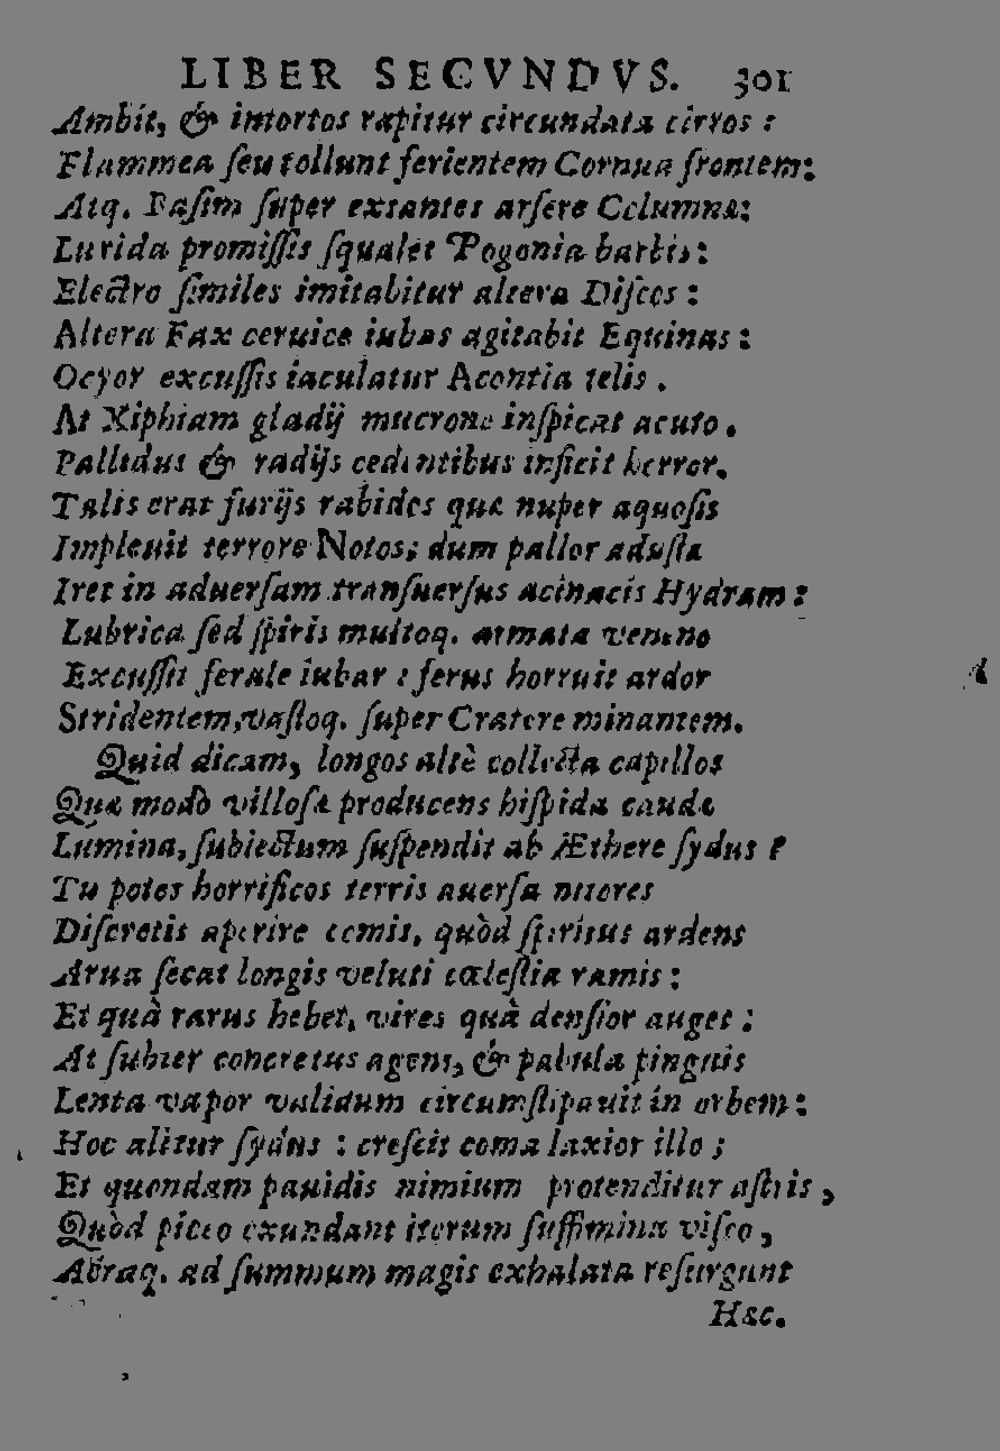 LIBER SECVNDVS. 301
Ambit, & intortos rapitur circundata cirros :
Flammea ſeu tollunt ferientem Cornua frontem:
Atq. Baſim ſuper extantes arſere Columnæ:
Lurida promiſſis ſqualet Pogonia barbis:
Electro ſimiles imitabitur altera Diſcos :
Altera Fax ceruice iubas agitabit Equinas :
Ocyor excuſſis iaculatur Acontia telis .
At Xiphiam gladij mucrone inſpicat acuto.
Pallidus & radijs cedentibus inficit horror.
Talis erat furijs rabides quæ nuper aquoſis
Impleuit terrore Notos; dum pallor aduſta
Iret in aduerſam tranſuerſus acinacis Hydram :
Lubrica ſed ſpiris multoq. armata veneno
Excuſſit ferale iubar : ferus horruit ardor
Stridentem, vaſtoq. ſuper Cratere minantem.
Quid dicam, longos altè collecta capillos
Quæ modò villoſæ producens hiſpida caudæ
Lumina, ſubiectum ſuſpendit ab Æthere ſydus ?
Tu potes horrificos terris auerſa nitores
Diſcretis aperire comis, quòd ſpiritus ardens
Arua ſecat longis veluti cæleſtia ramis :
Et quà rarus hebet, vires quà denſior auget :
At ſubter concretus agens, & pabula pinguis
Lenta vapor validum circumſtipauit in orbem :
Hoc alitur ſydus : creſcit coma laxior illo ;
Et quondam pauidis nimium protenditur aſtris ,
Quòd piceo exundant iterum ſuffimina viſco ,
Atraq. ad ſummum magis exhalata reſurgunt
Hæc.